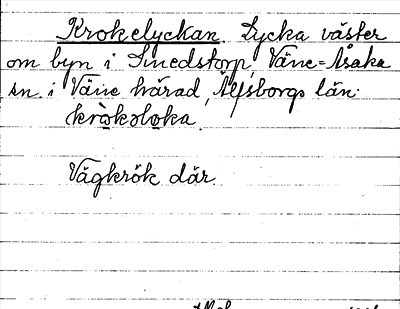 Krokelyckan. Lycka väster
om byn i Smedstorp, Väne-Åsaka
sn. i Väne härad, Älfsborgs län.
krokoloka.
Vägkrök där.